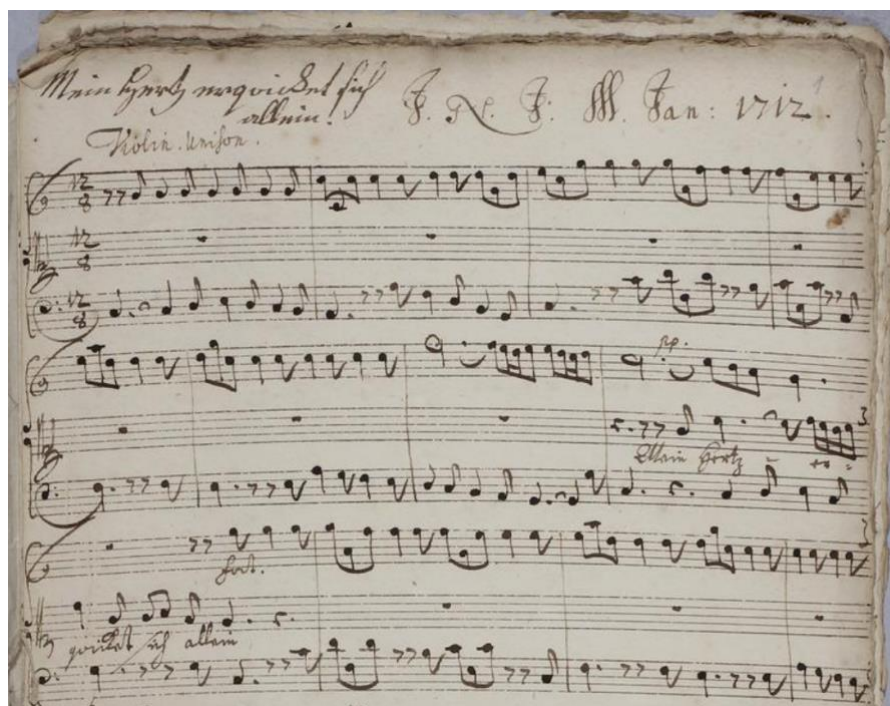 Mein Hertz erquicket sich
allein.
J. N. J. M. Jan: 1712.
1
Violin. Unison.
12
8
12
8
12
8
pp.
Mein Hertz - er -
3
3
fort.
quicket sich allein